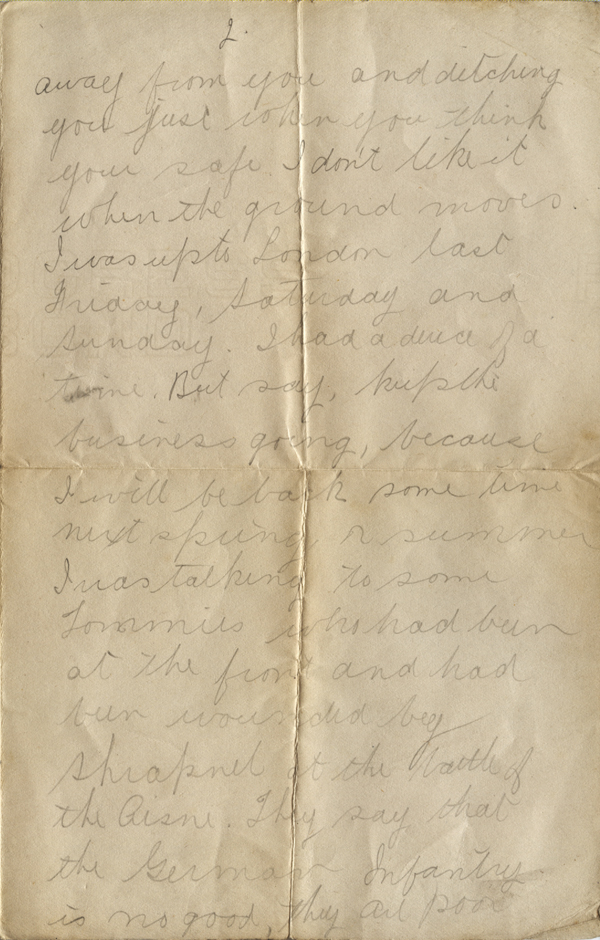 2.
away from you and ditching
you just when you think
your safe. I don't like it
when the ground moves.
I was up to London last
Friday, Saturday and
Sunday. I had a duce of a
time. But say, keep the
business going, because
I will be back some time
next spring or summer
I was talking to some
Tommies who had been
at the front and had
been wounded by
shrapnel at the Battle of
the Aisne. They say that
the German Infantry
is no good, they are poor